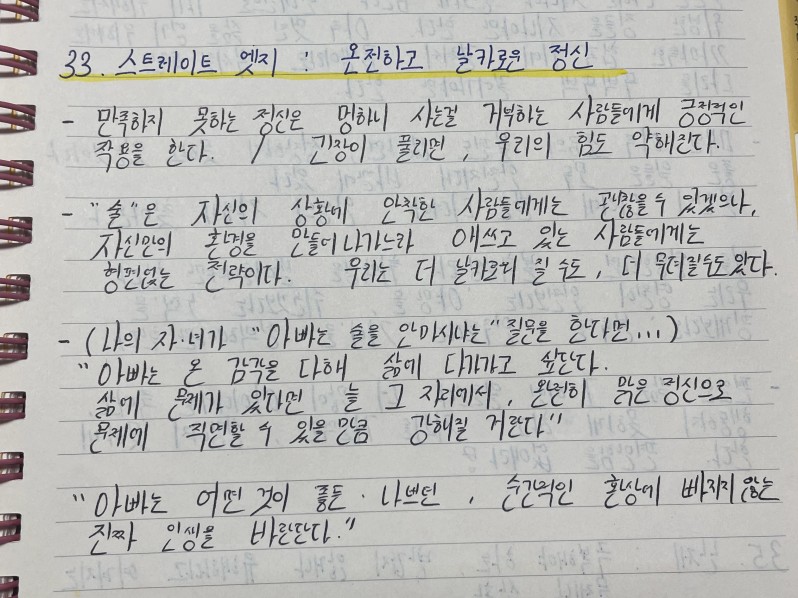 33. 스트레이트 엣지 : 온전하고 날카로운 정신
- 만족하지 못하는 정신은 멍하니 사는걸 거부하는 사람들에게 긍정적인
작용을 한다. / 긴장이 풀리면, 우리의 힘도 약해진다.
- "술"은 자신의 상황에 안착한 사람들에게는 괜찮을 수 있겠으나,
자신만의 환경을 만들어 나가느라 애쓰고 있는 사람들에게는
형편없는 전략이다. 우리는 더 날카로워 질 수도, 더 무뎌질수도 있다.
- (나의 자·녀가 "아빠는 술을 안마시냐는" 질문을 한다면...)
"아빠는 온 감각을 다해 삶에 다가가고 싶단다.
삶에 문제가 있다면 늘 그 자리에서, 완전히 맑은 정신으로
문제에 직면할 수 있을 만큼 강해질 거란다"
"아빠는 어떤 것이 좋든·나쁘던, 순간적인 환상에 빠지지 않는
진짜 인생을 바란단다."